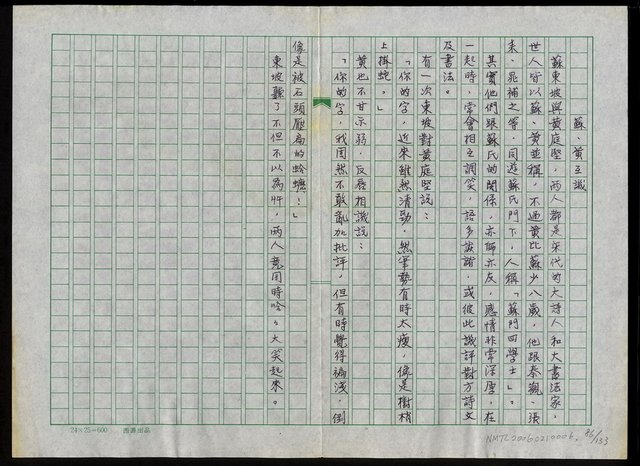 蘇、黃互譏
蘇東坡與黃庭堅，兩人都是宋代的大詩人和大書法家，
世人皆以蘇、黃並稱，不過黃比蘇少八歲，他跟秦觀、張
耒、晁補之等，同遊蘇氏門下，人稱「蘇門四學士」。
其實他們跟蘇氏的關係，亦師亦友，感情非常深厚，在
一起時，常會相互調笑，語多詼諧，或彼此譏評對方詩文
及書法。
有一次東坡對黃庭堅說：
「你的字，近來雖然清勁，然筆勢有時太瘦，像是樹梢
上掛蛇。」
黃也不甘示弱，反唇相譏說：
「你的字，我固然不敢亂加批評，但有時覺得褊淺，倒
像是被石頭壓扁的蛤蟆！」
東坡聽了不但不以為忤，兩人竟同時哈哈大笑起來。
24×25=600
NMTL20060210006
86/133